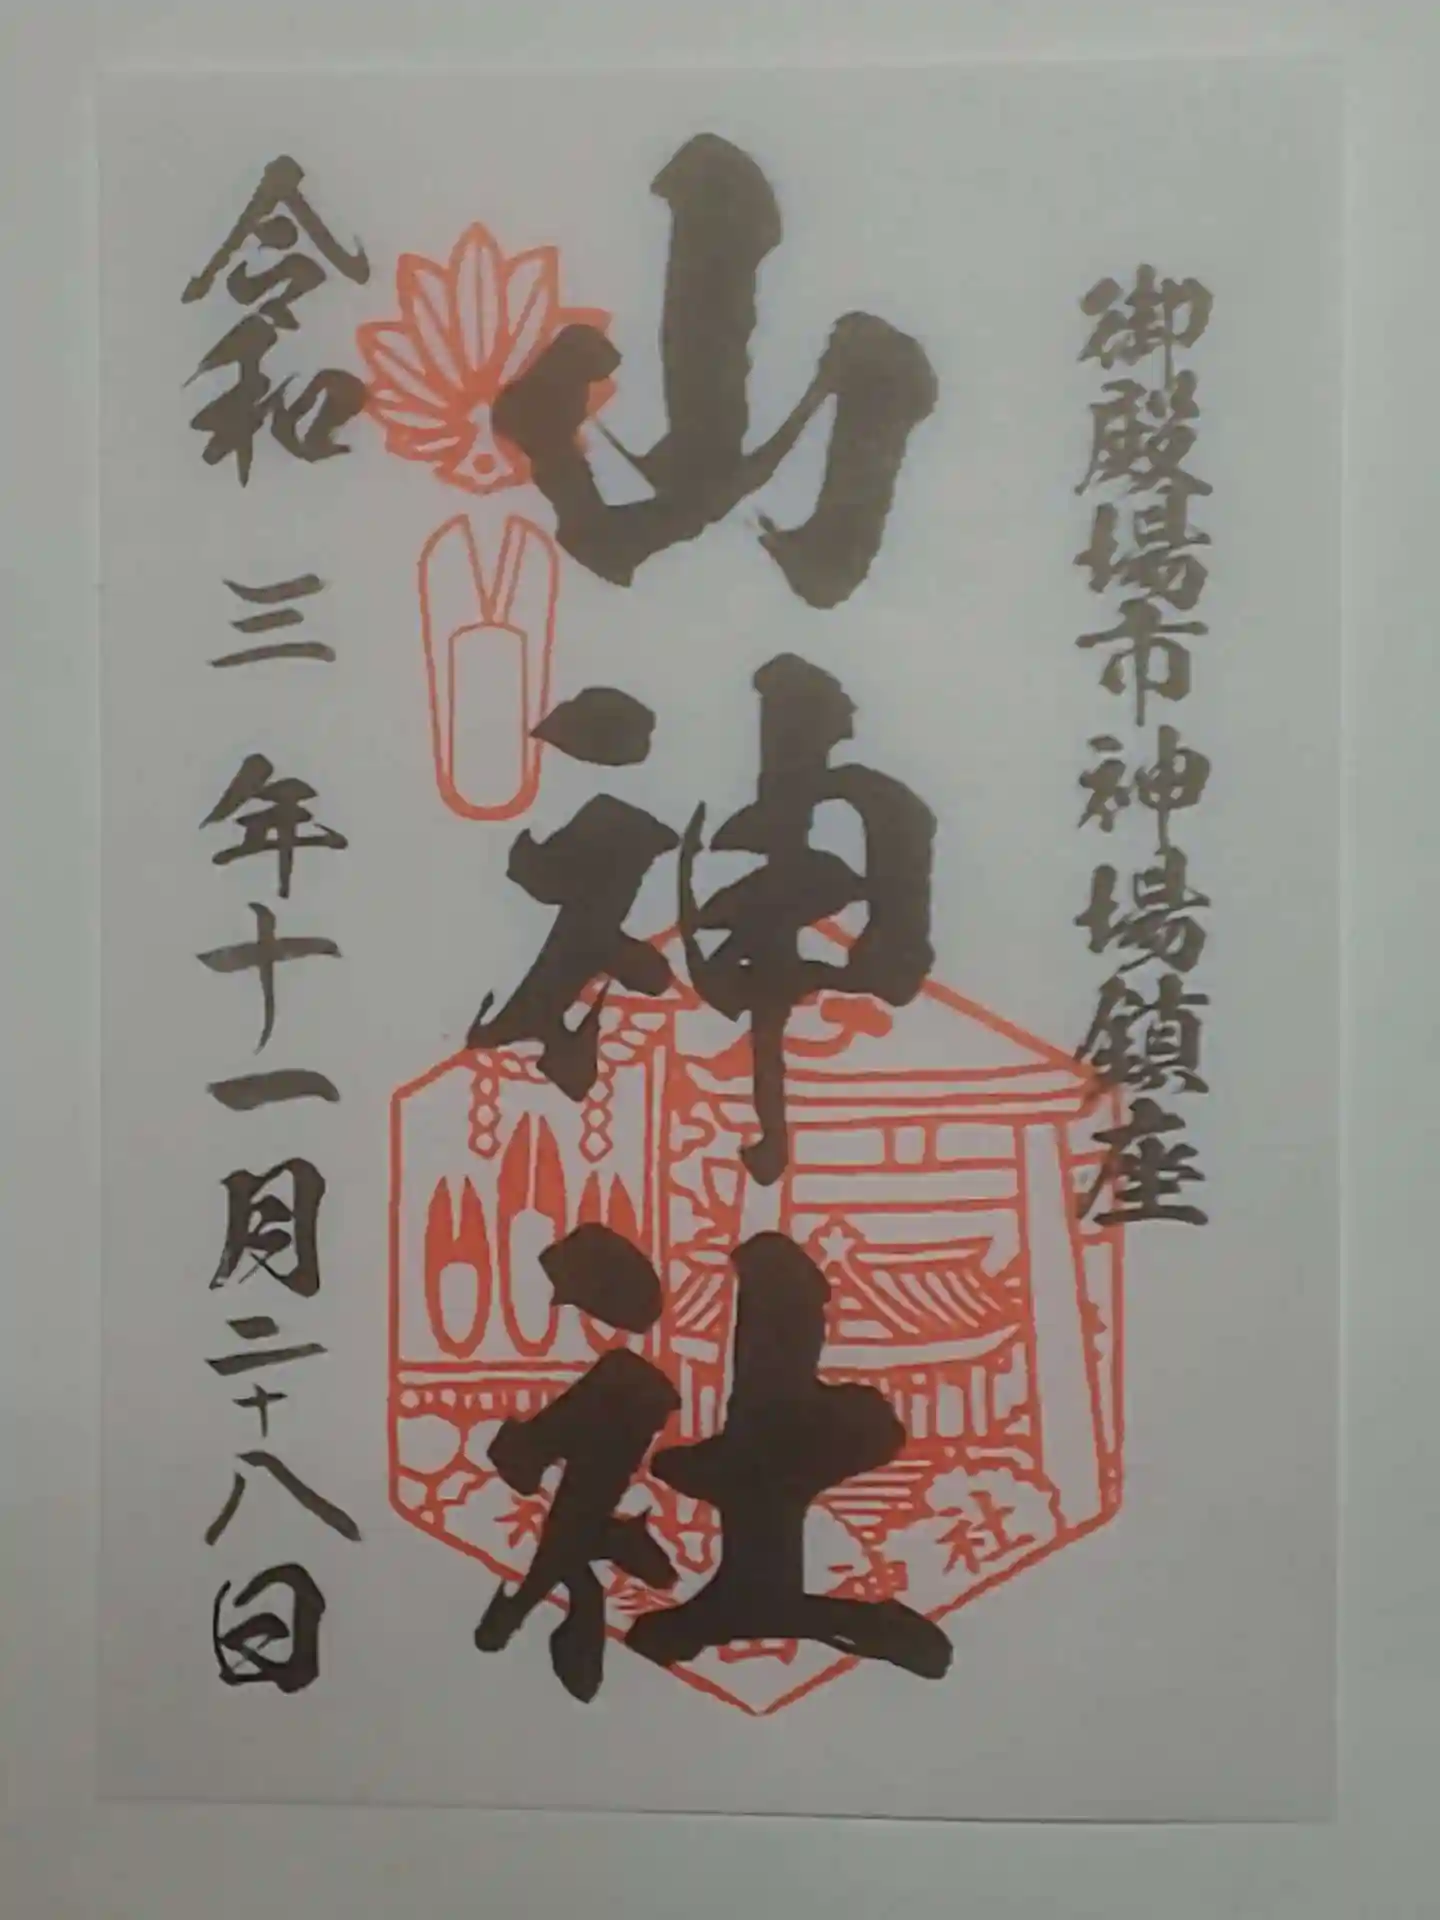 御殿場市神場鎮座
山神社
令和三年十一月二十八日
神社
山